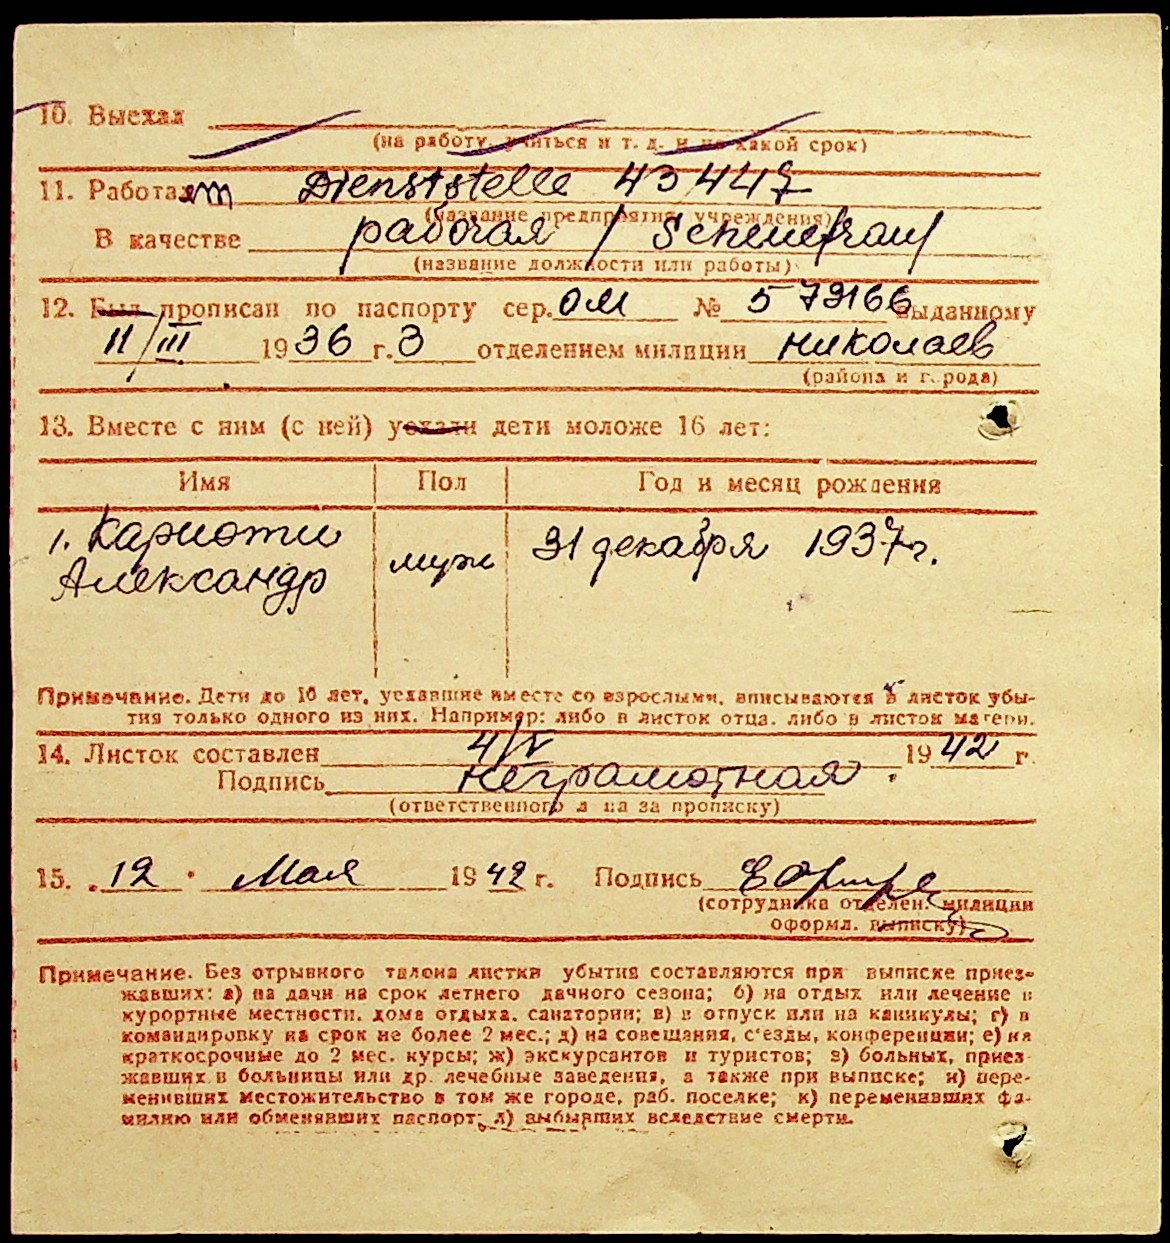 10. Выехал
(на работу, учиться и т. д. и на какой срок)
11. Работает Dienststelle 43447
(название предприятия, учреждения)
В качестве рабочая / Scheuefrau/
(название должности или работы)
12. Был прописан по паспорту сер. ОМ № 579166 выданному
11/III 1936 г. 3 отделением милиции Николаев
(района и города)
13. Вместе с ним (с ней) уехали дети моложе 16 лет:
Имя Пол Год и месяц рождения
1. Кариоти муж 31 декабря 1937 г.
Александр
Примечание. Дети до 16 лет, уехавшие вместе со взрослыми, вписываются в листок убы-
тия только одного из них. Например: либо в листок отца, либо в листок матери.
14. Листок составлен 4/V 1942 г.
Подпись неграмотная.
(ответственного лица за прописку)
15. 12 Мая 1942 г. Подпись
(сотрудника отделен. милиции
оформл. выписку)
Примечание. Без отрывного талона листки убытия составляются при выписке приез-
жавших: а) на дачи на срок летнего дачного сезона; б) на отдых или лечение в
курортные местности, дома отдыха, санатории; в) в отпуск или на каникулы; г) в
командировку на срок не более 2 мес.; д) на совещания, с'езды, конференции; е) на
краткосрочные до 2 мес. курсы; ж) экскурсантов и туристов; з) больных, приез-
жавших в больницы или др. лечебные заведения, а также при выписке; и) пере-
менивших местожительство в том же городе, раб. поселке; к) переменивших фа-
милию или обменявших паспорт; л) выбывших вследствие смерти.